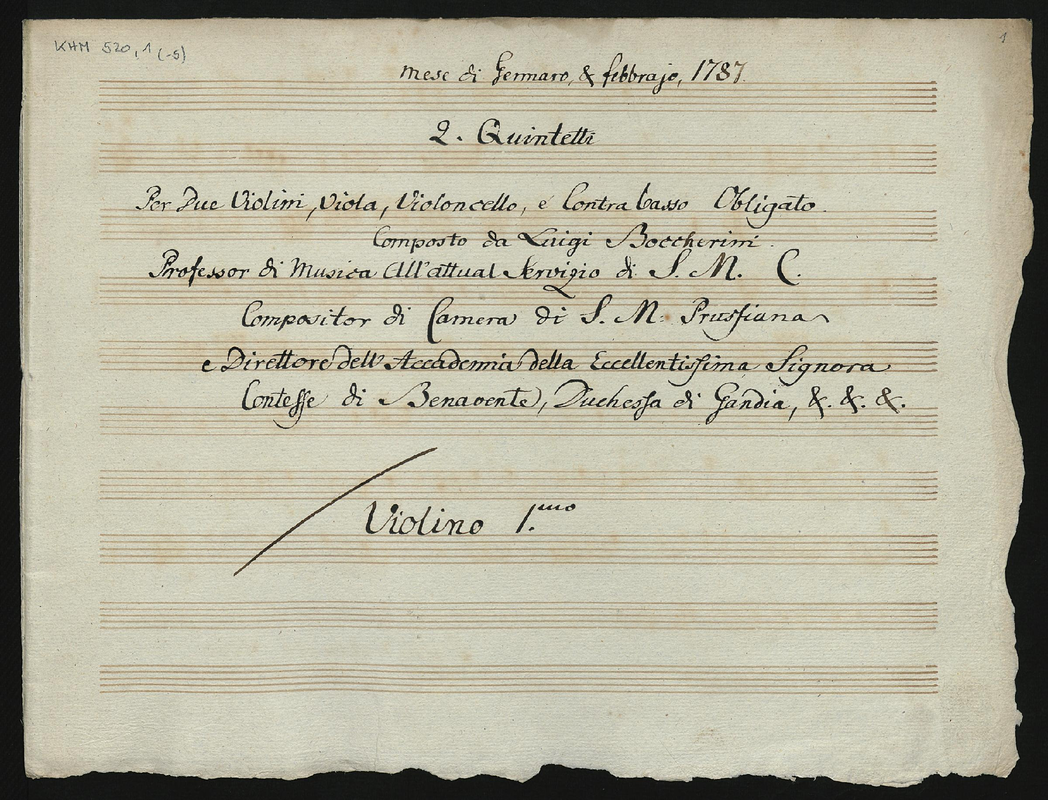 KHM 520,1 (-5)
1
Mese di Gennaro, & febbrajo, 1787.
2. Quintetti
Per Due Violini, Viola, Violoncello, e Contra basso Obligato.
Composto da Luigi Boccherini.
Professor di Musica All'attual Servizio di S. M. C.
Compositor di Camera di S. M. Prussiana
e Direttore dell'Accademia della Eccellentissima Signora
Contesse di Benavente, Duchessa di Gandia, &. &. &.
Violino 1.mo